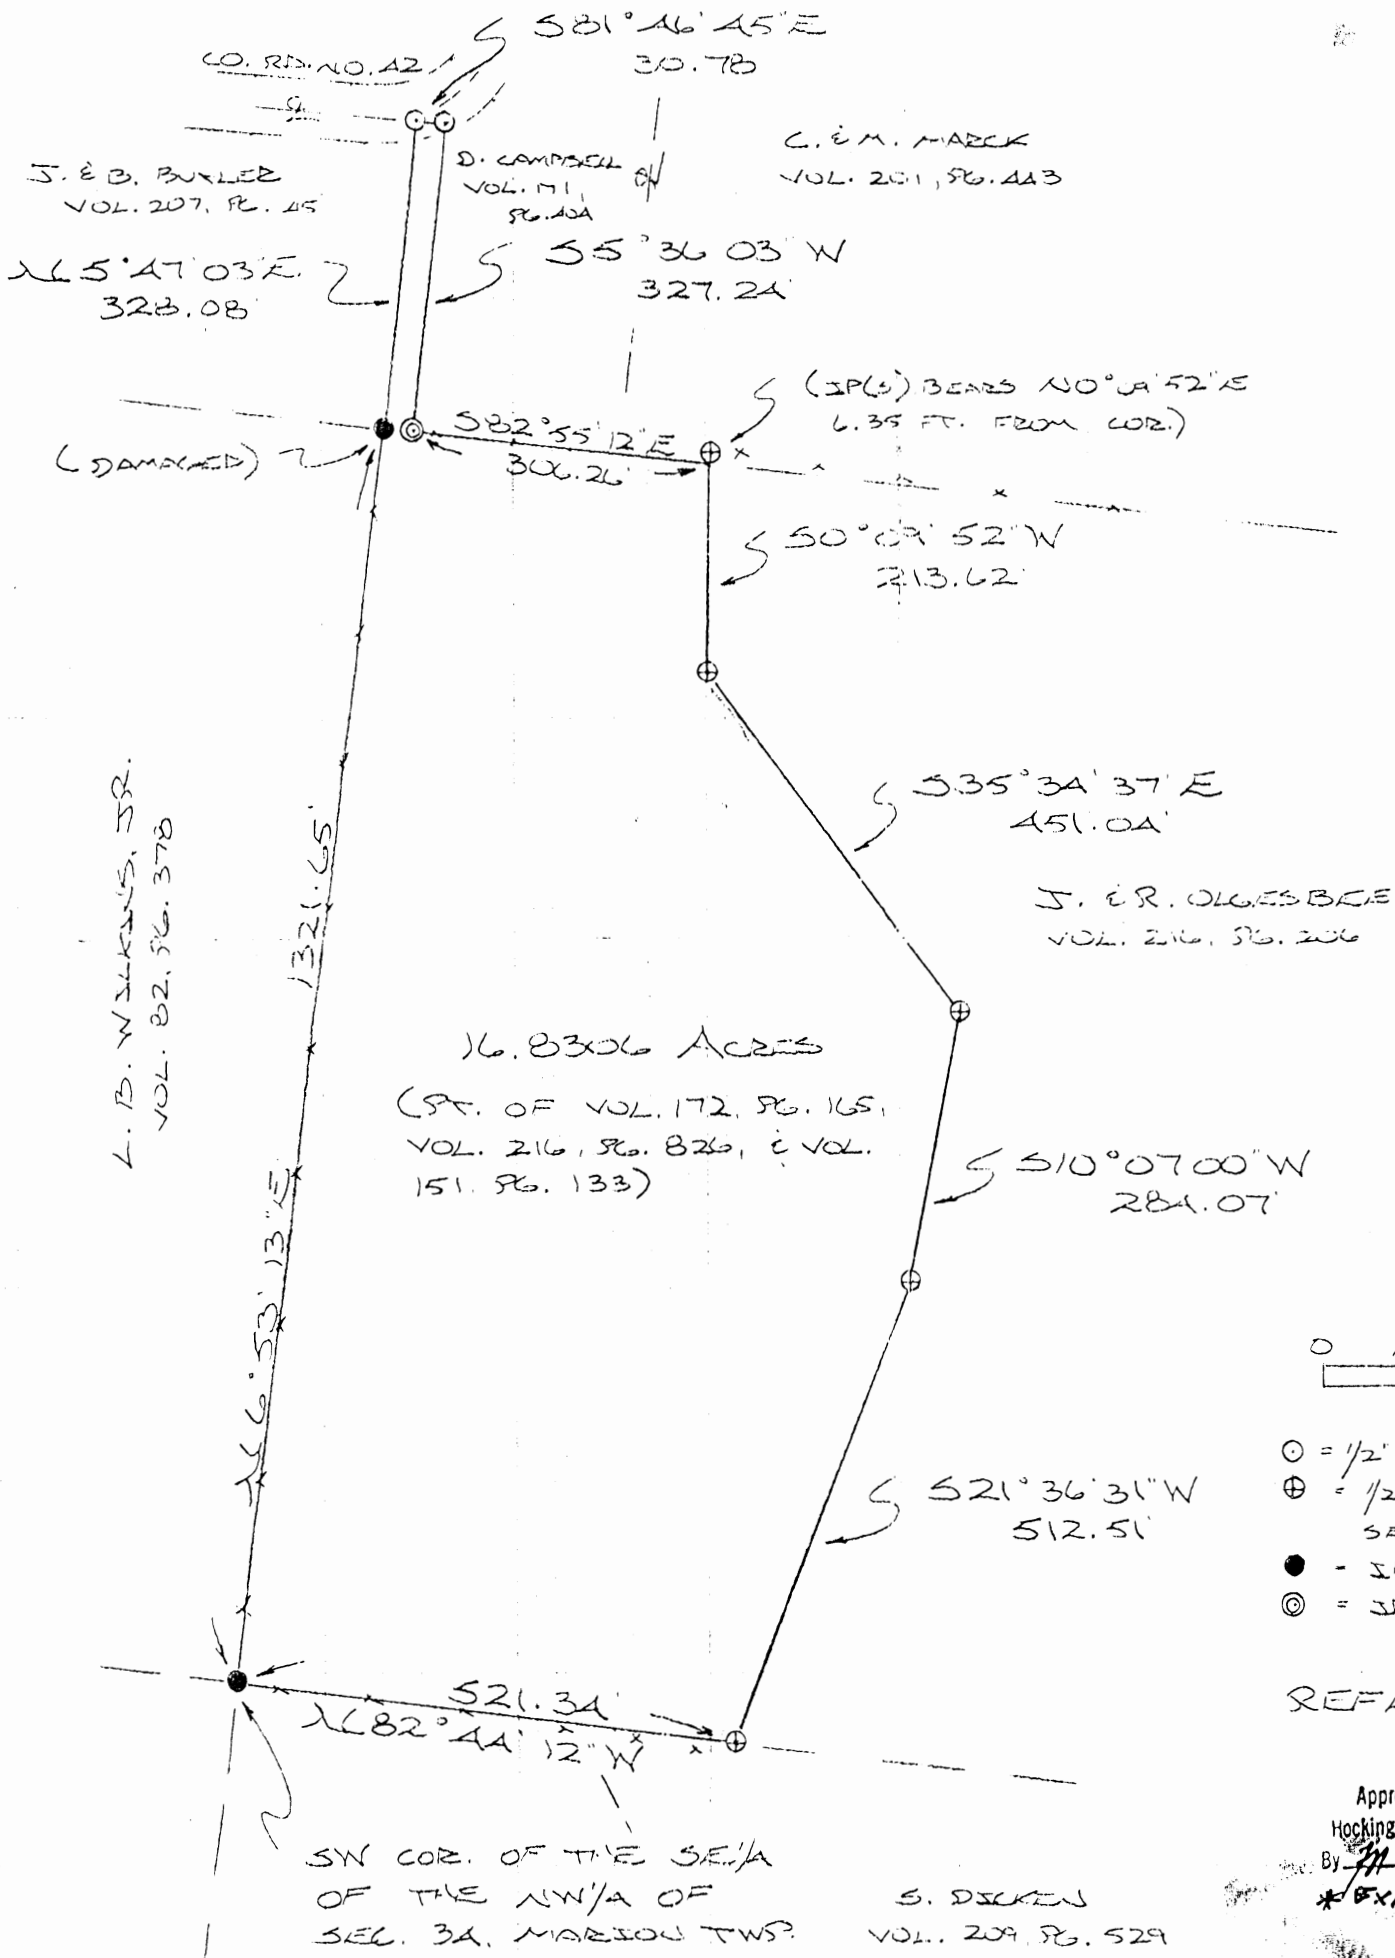 S81°46'45"E
30.78
CO. RD. NO. 42
J. & B. BUXLER
VOL. 207, PG. 45
D. CAMPBELL
VOL. 171,
PG. 404
C. & M. MARCK
VOL. 201, PG. 443
N5°47'03"E
328.08'
S5°36'03"W
327.24'
(IP(S) BEARS N0°09'52"E
6.35 FT. FROM COR.)
(DAMAGED)
S82°55'12"E
306.26'
S0°09'52"W
213.62'
S35°34'37"E
451.04'
J. & R. OLGESBEE
VOL. 216, PG. 206
L. B. WILKINS, JR.
VOL. 82, PG. 378
1321.65'
N6°53'13"E
16.8306 ACRES
(PT. OF VOL. 172, PG. 165,
VOL. 216, PG. 826, & VOL.
151, PG. 133)
S10°07'00"W
284.07'
0
⊙ = 1/2"
⊕ = 1/2
S21°36'31"W
512.51'
521.34'
N82°44'12"W
SW COR. OF THE SE1/4
OF THE NW1/4 OF
SEC. 34, MARION TWP.
S. DICKEN
VOL. 209, PG. 529
Hocking
By